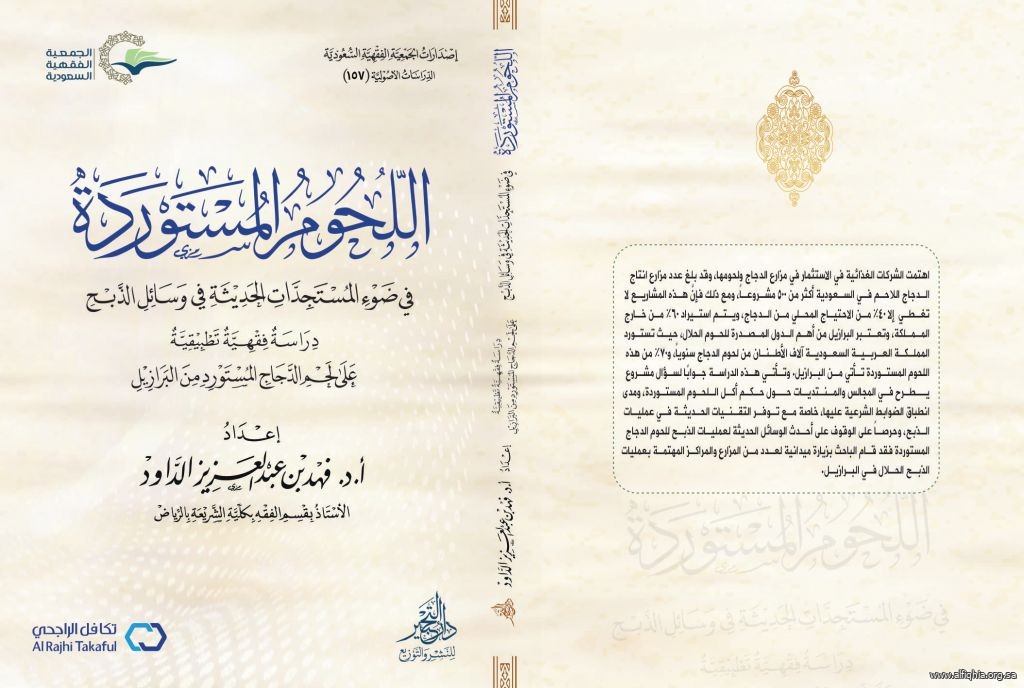 الجمعية
الفقهية
السعودية
إصدارات الجمعية الفقهية السعودية
الدراسات الأصولية (١٥٧)
اللُّحُومُ المُسْتَوْرَدَةُ
في ضَوْءِ المُسْتَجِدَّاتِ الحَدِيثَةِ في وَسَائِلِ الذَّبْحِ
دِرَاسَةٌ فِقْهِيَّةٌ تَطْبِيقِيَّةٌ
عَلَى لَحْمِ الدَّجَاجِ المُسْتَوْرَدِ مِنَ البَرَازِيلِ
إعْدَادُ
أ.د. فهد بن عبدالعزيز الداود
الأستاذ بقسم الفقه بكلية الشريعة بالرياض
تكافل الراجحي
Al Rajhi Takaful
دار التحبير
للنشر والتوزيع
اللحوم المستوردة
في ضوء المستجدات الحديثة في وسائل الذبح
دراسة فقهية تطبيقية
على لحم الدجاج المستورد من البرازيل
إعداد
أ.د. فهد بن عبدالعزيز الداود
اهتمت الشركات الغذائية في الاستثمار في مزارع الدجاج ولحومها، وقد بلغ عدد مزارع انتاج
الدجاج اللاحم في السعودية أكثر من ٥٠٠ مشروعاً، ومع ذلك فإن هذه المشاريع لا
تغطي إلا ٤٠٪ من الاحتياج المحلي من الدجاج، ويتم استيراد ٦٠٪ من خارج
المملكة، وتعتبر البرازيل من أهم الدول المصدرة للحوم الحلال، حيث تستورد
المملكة العربية السعودية آلاف الأطنان من لحوم الدجاج سنوياً، و٧٠٪ من هذه
اللحوم المستوردة تأتي من البرازيل، وتأتي هذه الدراسة جواباً لسؤال مشروع
يطرح في المجالس والمنتديات حول حكم أكل اللحوم المستوردة، ومدى
انطباق الضوابط الشرعية عليها، خاصة مع توفر التقنيات الحديثة في عمليات
الذبح، وحرصاً على الوقوف على أحدث الوسائل الحديثة لعمليات الذبح للحوم الدجاج
المستوردة فقد قام الباحث بزيارة ميدانية لعدد من المزارع والمراكز المهتمة بعمليات
الذبح الحلال في البرازيل.
اللحوم المستوردة
في ضوء المستجدات الحديثة في وسائل الذبح
دراسة فقهية تطبيقية
www.alfiqhia.org.sa